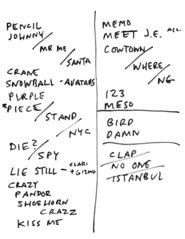 PENCIL
JOHNNY
MR ME
SANTA
CRANE
SNOWBALL - AVATARS
PURPLE
*PIECE
STAND
NYC
DIE?
SPY
LIE STILL - CLARI
+ GIZMO
CRAZY
PANDOR
SHOEHORN
CRAZZ
KISS ME
MEMO
MEET J.E.
COWTOWN
WHERE
NG
123
MESO
BIRD
DAMN
CLAP
NO ONE
ISTANBUL